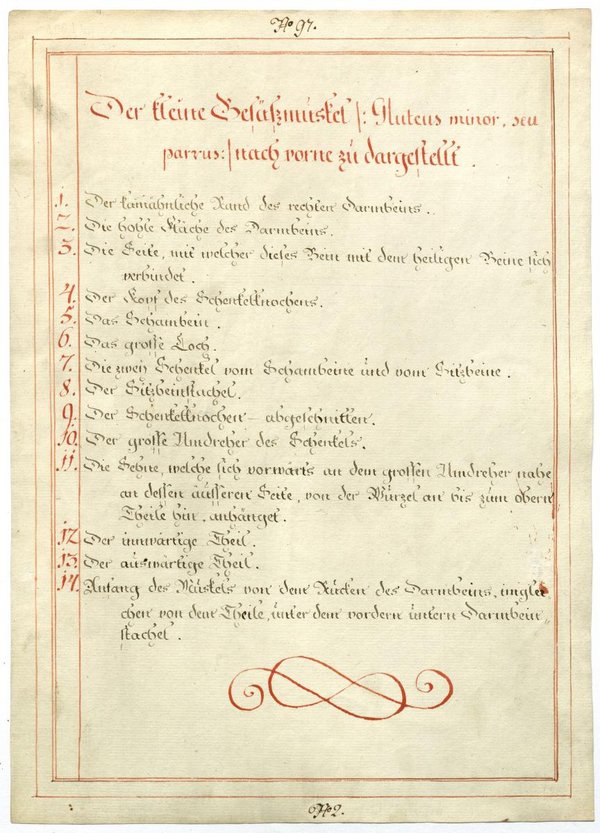 No 97.
Der kleine Gesäßmuskel /: Gluteus minor, seu
parvus :/ nach vorne zu dargestellt.
1. Der kamähnliche Rand des rechten Darmbeins.
2. Die hohle Fläche des Darmbeins.
3. Die Seite, mit welcher dieses Bein mit dem heiligen Beine sich
verbindet.
4. Der Kopf des Schenkelknochens.
5. Das Schambein.
6. Das grosse Loch.
7. Die zwey Schenkel vom Schambeine und vom Sitzbeine.
8. Der Sitzbeinstachel.
9. Der Schenkelknochen – abgeschnitten.
10. Der grosse Umdreher des Schenkels.
11. Die Sehne, welche sich vorwärts an dem grossen Umdreher nahe
an dessen äusseren Seite, von der Wurzel an bis zum obern
Theile hin, anhänget.
12. Der innwärtige Theil.
13. Der auswärtige Theil.
14. Anfang des Muskels von dem Rücken des Darmbeins, imglei
chen von dem Theile, unter dem vordern untern Darmbein„
stachel.
No 2.